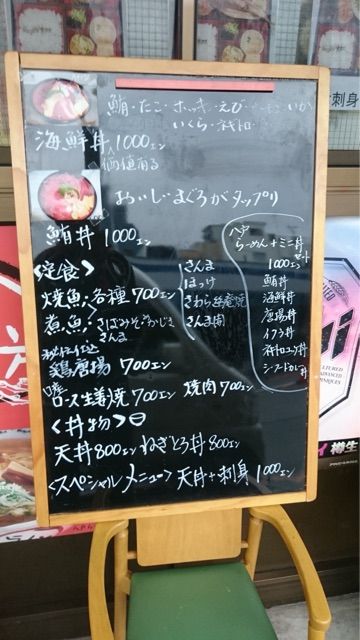 鮪・たこ・ホッキ・えび
いか
いくら・ネギトロ
海鮮丼 1000エン
価値有る
おいしいまぐろがタップリ
鮪丼 1000エン
らーめん+ミニ丼
セット
1000エン
鮪丼
海鮮丼
唐揚丼
イクラ丼
ネギトロ丼
シーフードカレー丼
<定食>
焼魚:各種700エン
さんま
ほっけ
さわら西京焼
煮魚:さばみそ・かじき
さんま
さんま
鶏唐揚 700エン
ロース生姜焼 700エン 焼肉 700エン
<丼物>
天丼 800エン ねぎとろ丼 800エン
<スペシャルメニュー> 天丼+刺身 1000エン
刺身
樽生